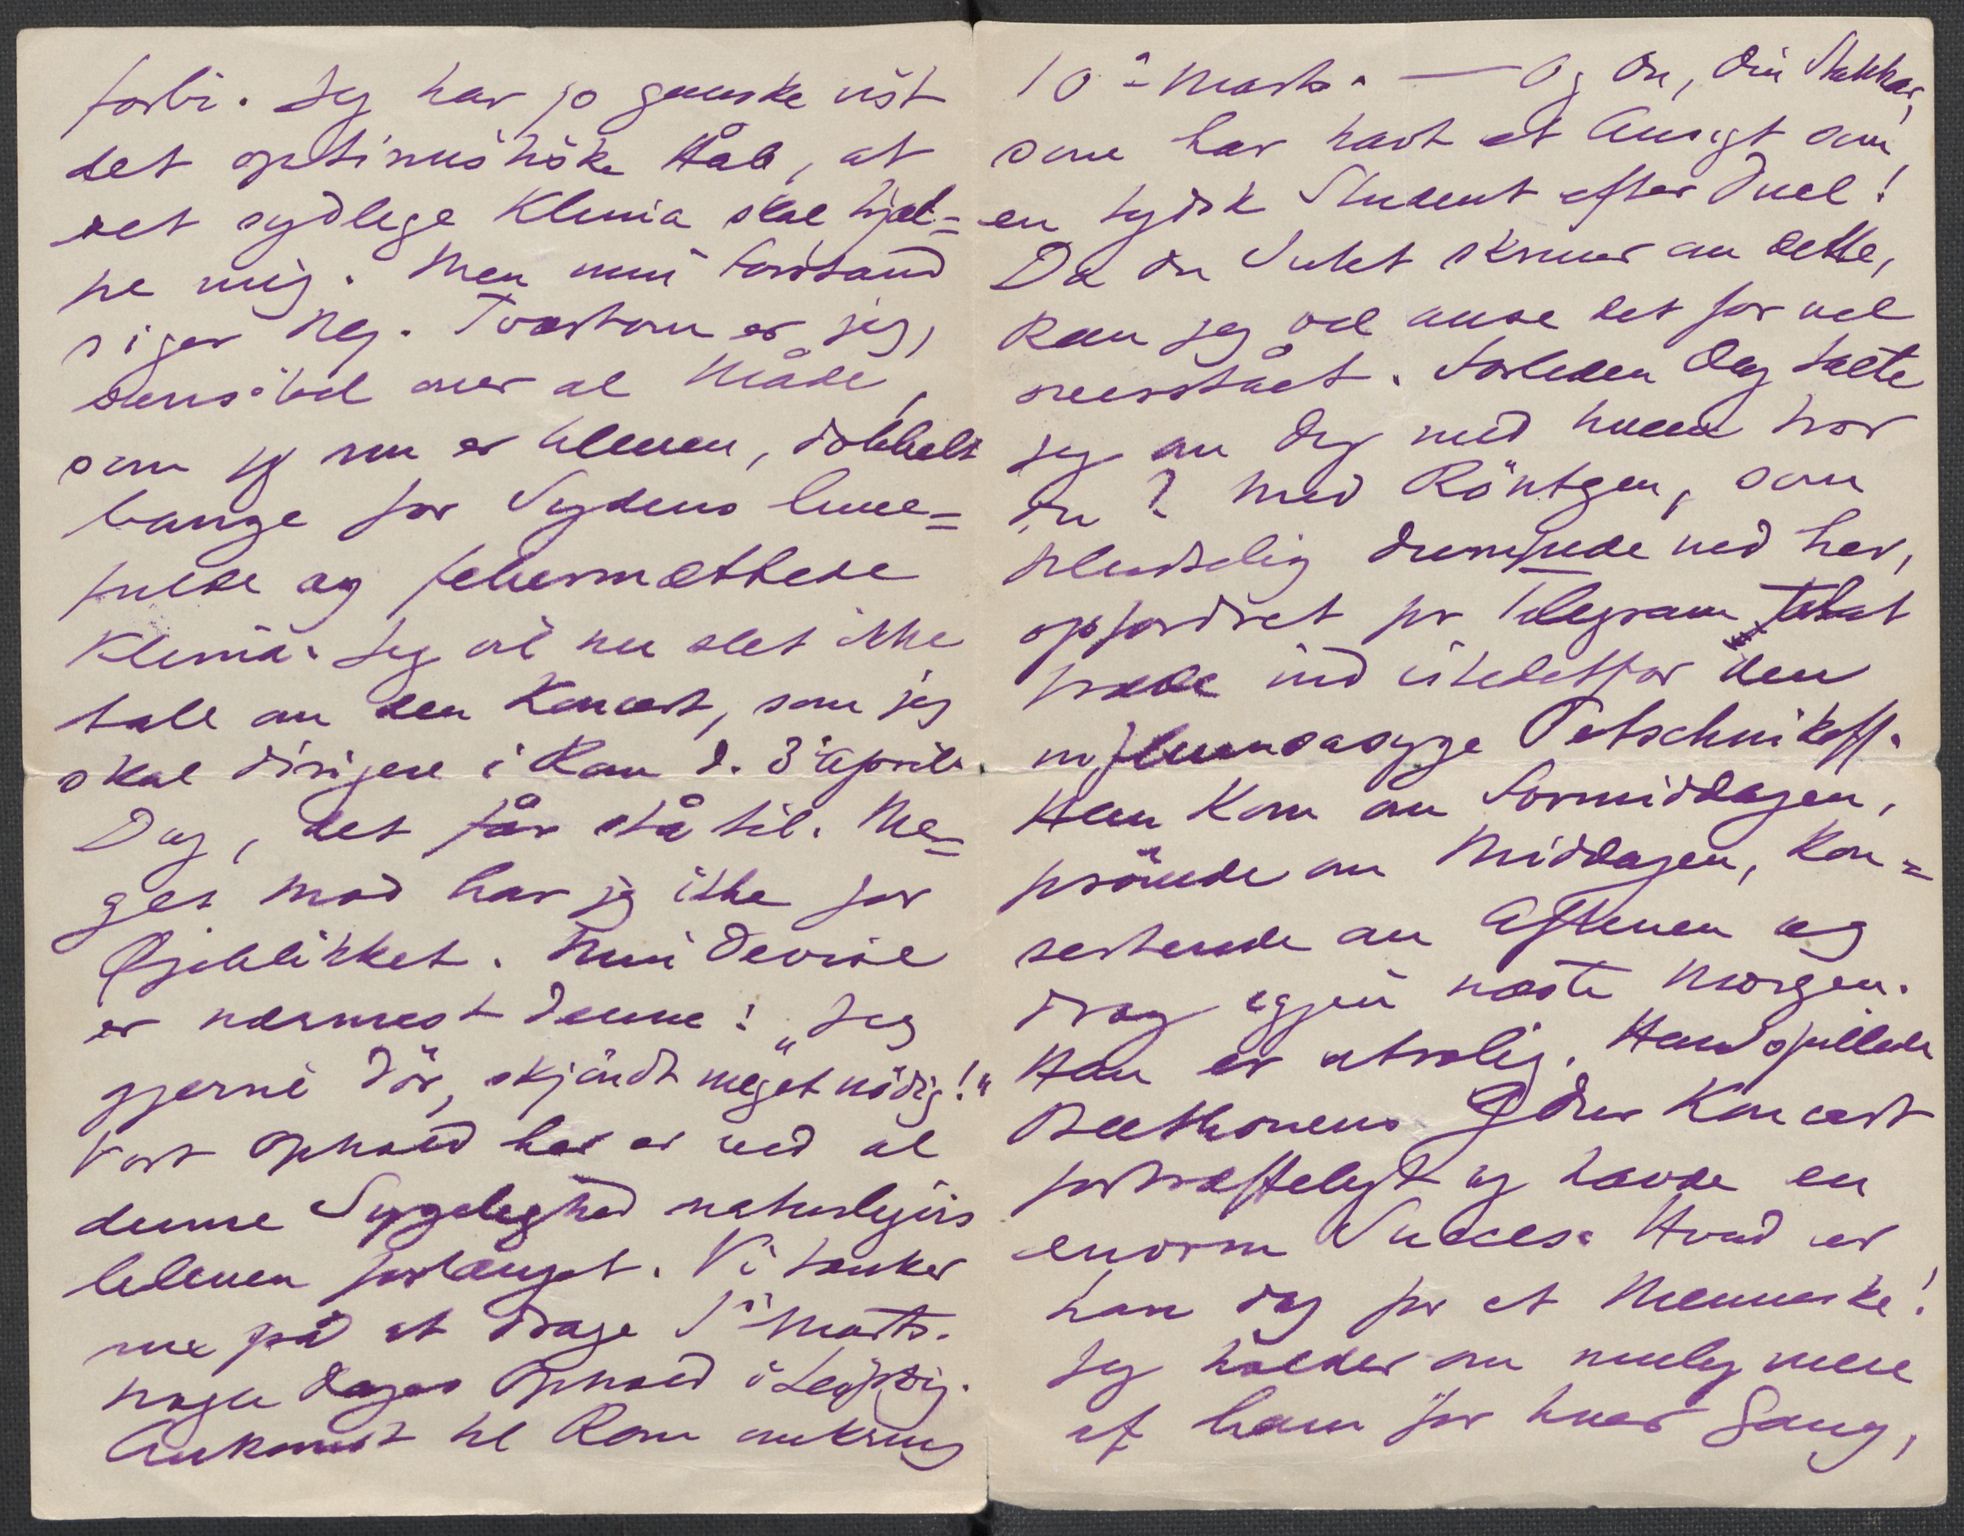 forbi. Jeg har jo ganske vist
det optimistiske Håb, at
det sydlige Klima skal hjæl=
pe mig. Men min Forstand
siger Nej. Tvertom er jeg,
sensibel over al Måde,
som jeg nu er bleven, dobbelt
bange for Sydens lune=
fulde og febermættede
Klima. Jeg vil nu slet ikke
tale om den Koncert, som jeg
skal dirigere i Rom d. 3die April.
Dog, det får stå til. Me=
get Mod har jeg ikke for
Øjeblikket. Min Devise
er nærmest denne: „Jeg
gjerne dör, skjöndt meget nödig!"
Vort Ophold her er ved al
denne Sygelighed naturligvis
bleven forlænget. Vi tænker
nu på at drage 1ste Marts.
Nogle Dages Ophold i Leipzig.
Ankomst til Rom omkring
10de Marts. — Og Du, Din Stakkar,
som har havt et Ansigt som
en tydsk Student efter Duel!
Da Du Intet skriver om dette,
kan jeg vel anse det for vel
overstået. Forleden Dag talte
jeg om Dig med hvem tror
Du? Med Röntgen, som
pludselig dumpede ned her,
opfordret pr Telegram til at
træde ind istedetfor den
influenzasyge Petschnikoff.
Han kom om Formiddagen,
prövede om Middagen, kon=
serterede om Aftenen og
drog igjen næste Morgen.
Han er utrolig. Han spillede
Beethovens G dur Koncert
fortræffeligt og havde en
enorm Succes. Hvad er
han dog for et Menneske!
Jeg holder om mulig mere
af ham for hver Gang,